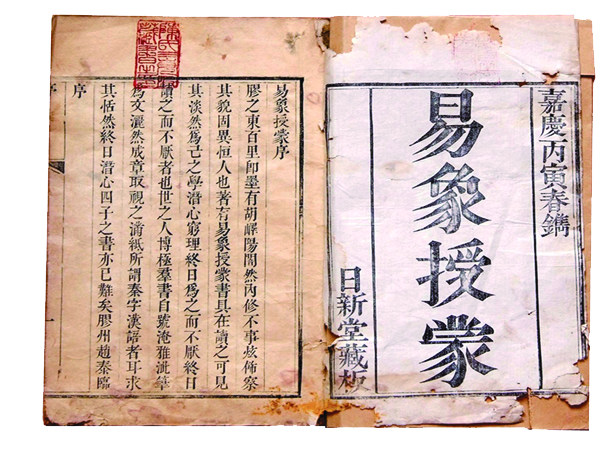 嘉慶丙寅春鐫
易象授蒙
日新堂藏板
易象授蒙序
膠之東百里即墨有胡嶧陽闇然內修不事炫察
其貌固異恒人也著有易象授蒙書具在讀之可見
其淡然為己之學潛心窮理終日為之而不厭終日
讀之而不厭者也世之人博極羣書自號淹雅泚筆
為文灑然成章取視之滿紙所謂秦字漢語者耳求
其恬然終日潛心四子之書亦已難矣膠州趙秦臨
序
序
一